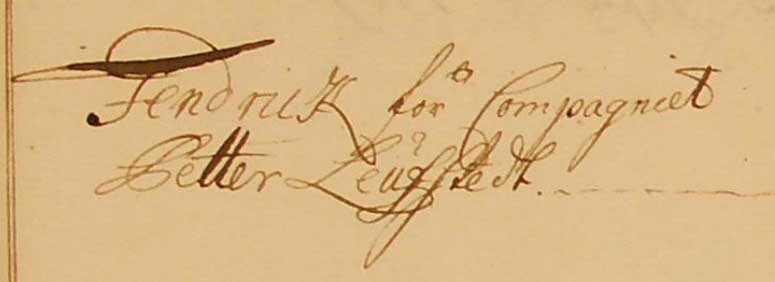 Fendrick för Compagniet
Petter Leufstedt.